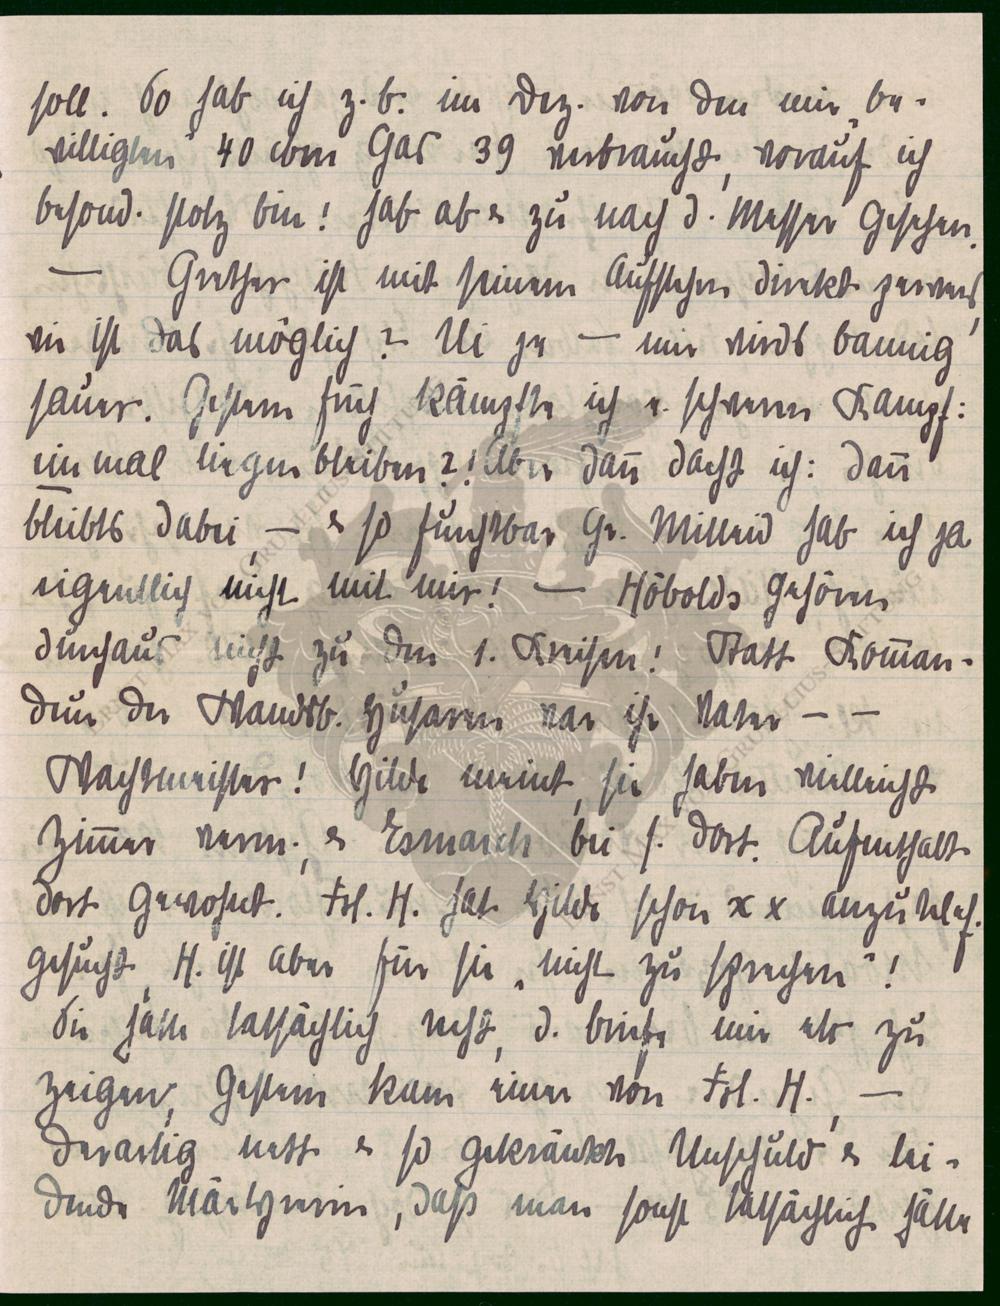 soll. So hab ich z. b. im Dez. von den mir „be-
willigten“ 40 cbm Gas 39 verbraucht, worauf ich
besond. stolz bin! hab ab & zu nach d. Messer gesehen.
— Grether ist mit seinem Aufstehen direkt
wie ist das möglich? Ui je — mir wirds bannig
sauer. Gestern früh kämpfte ich e. schweren Kampf:
einmal liegen bleiben?! Aber dañ dacht ich: dañ
bleibts dabei, — & so furchtbar gr. Mitleid hab ich ja
eigentlich nicht mit mir! — Höbolds gehören
durchaus nicht zu den 1. Kreisen! Statt Kom̄an-
deur der Wandsb. Husaren war ihr Vater — —
Wachtmeister! Hilde meint, sie haben vielleicht
Zim̄er verm., & Esmarch bei s. dort. Aufenthalt
dort gewohnt. Frl. H. hat Hilde schon x x anzutelef.
gesucht, H. ist aber für sie „nicht zu sprechen“!
Sie hätte tatsächlich recht, d. Briefe mir etc zu
zeigen, gestern kam einer von Frl. H., —
derartig nett & so gekränkte Unschuld & lei-
dende Märtyrerin, daß man sonst tatsächlich hätte